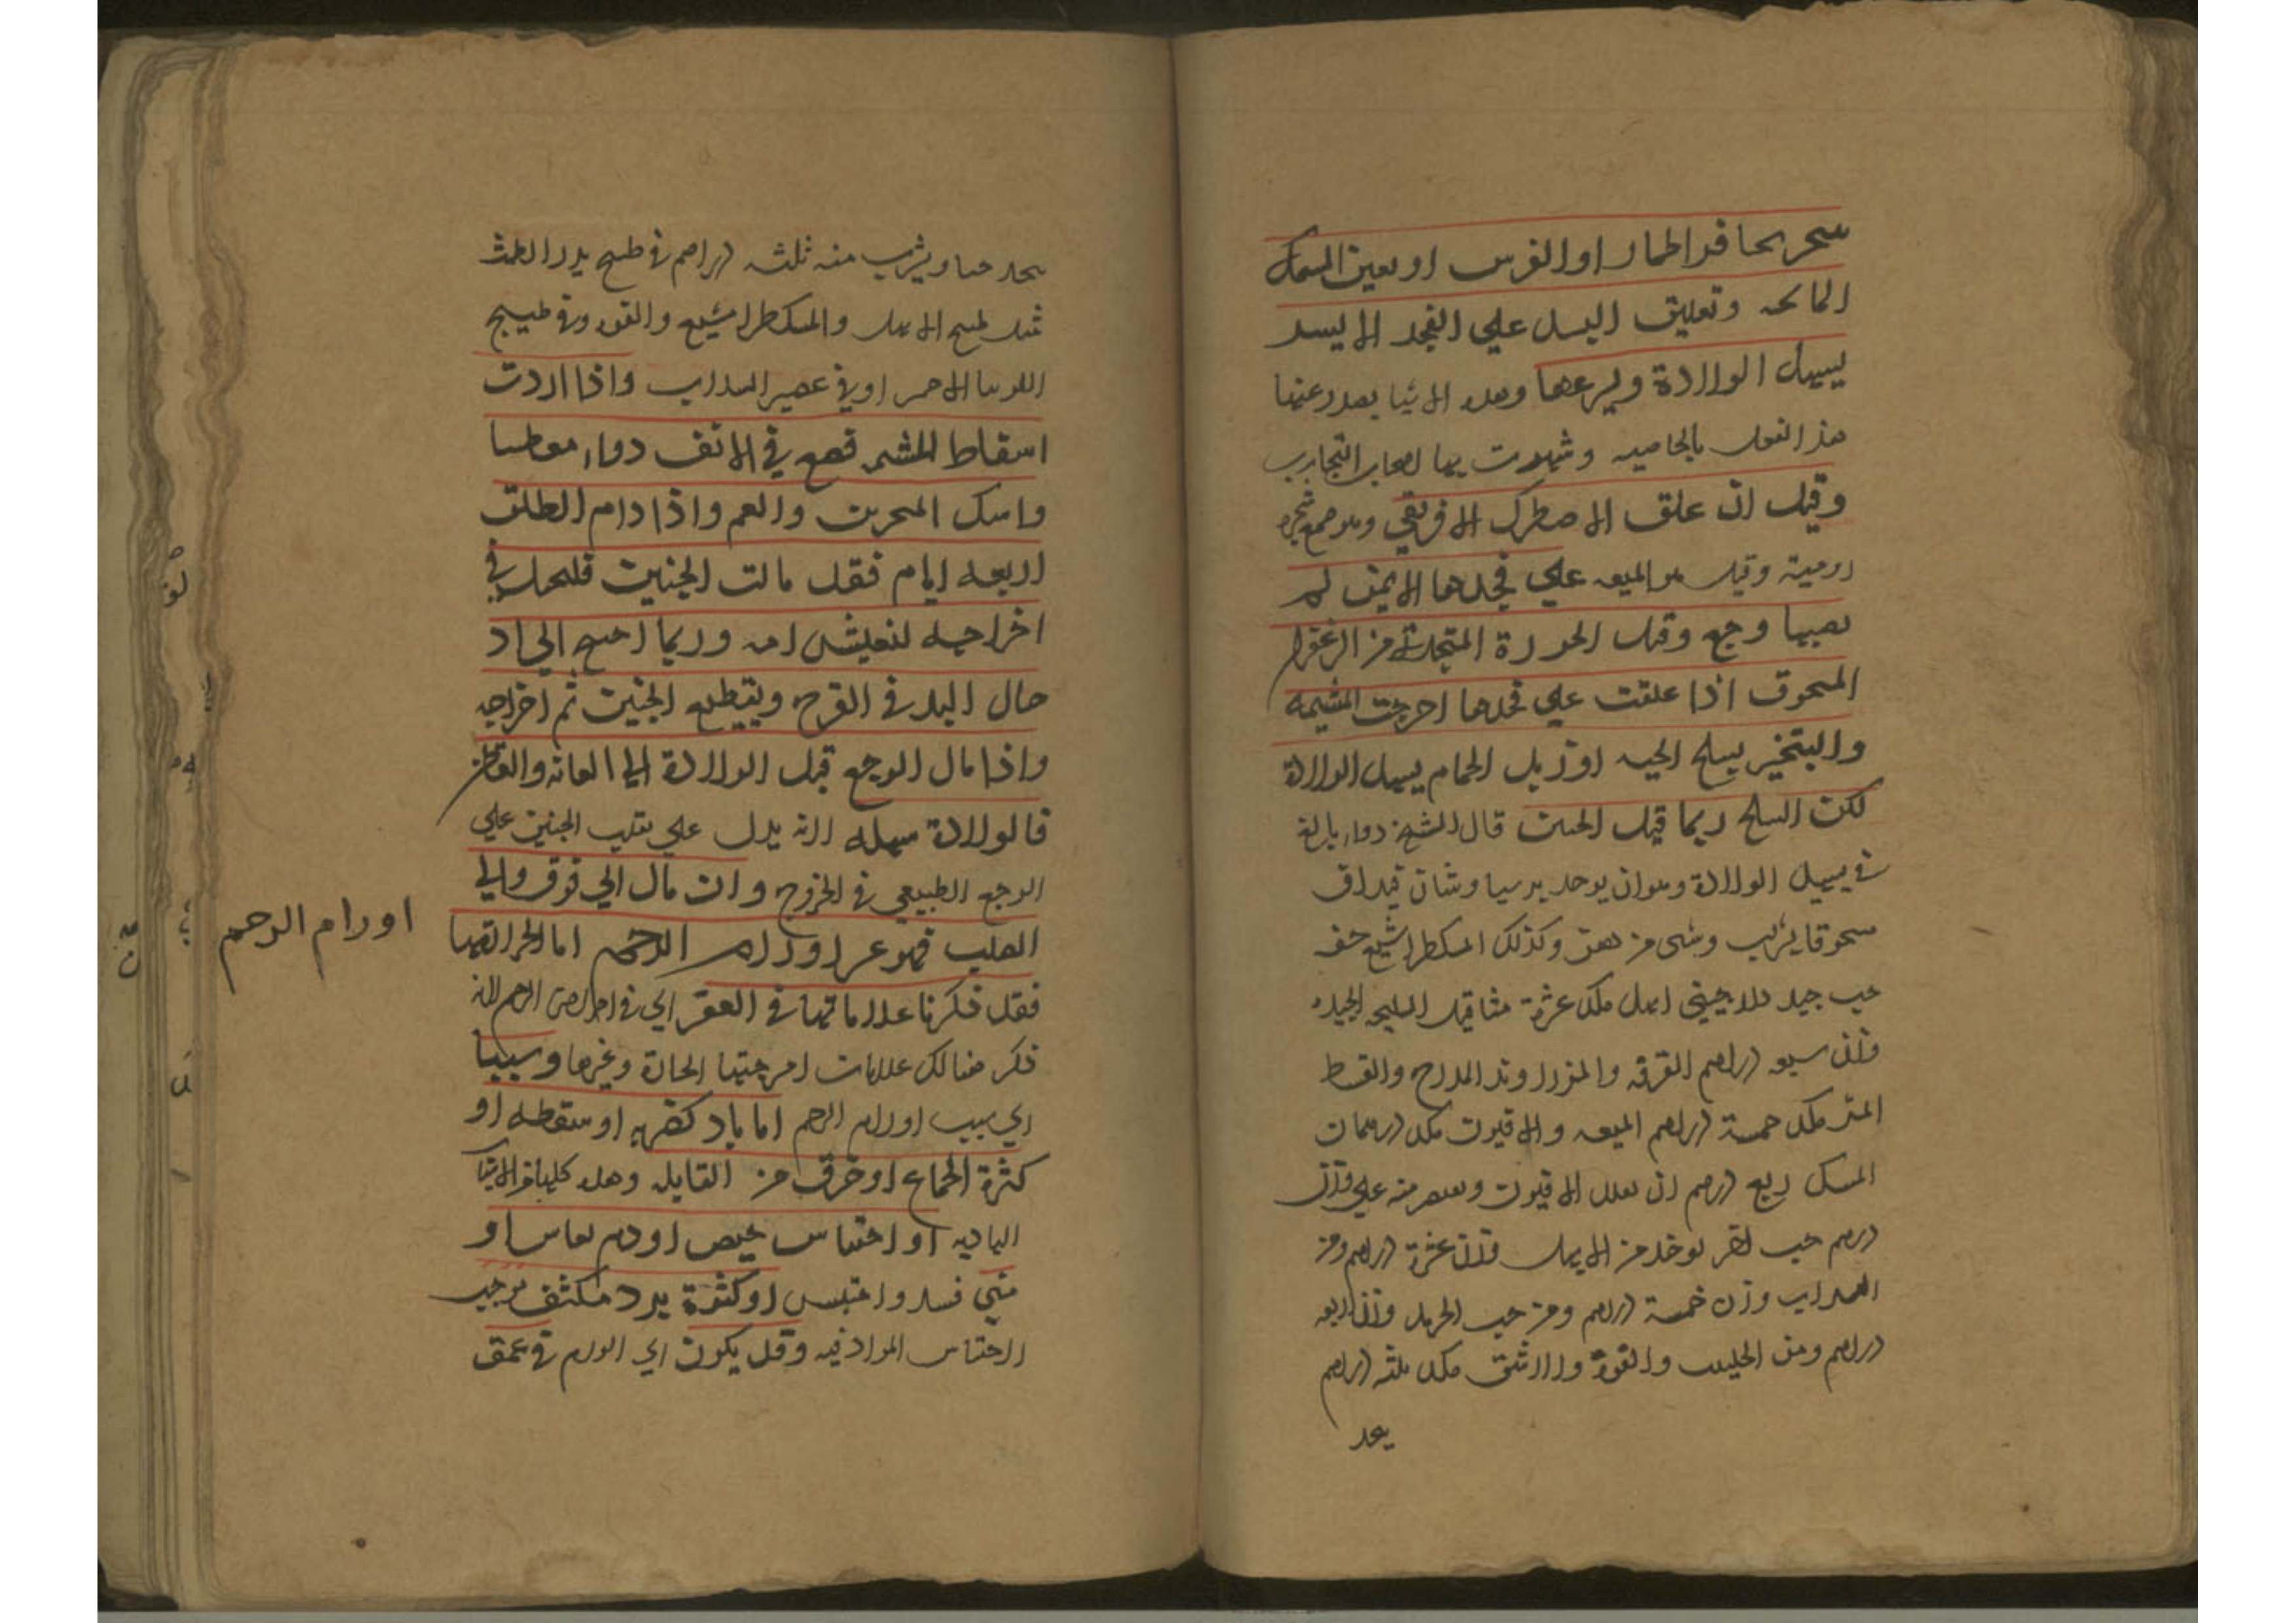 بحافر الحمار او الفرس او بعين السمك
المالحه وتعليق البسد علي الفخذ الايسر
يسهل الولادة ويسرعها وهذه الاشيا يصدر عنها
هذا الفعل بالخاصيه وشهدت بها اصحاب التجارب
وقيل ان علق الاصطرك الافريقي وهو صمغ شجرة
رومية وقيل هو الميعه علي فخذها الايمن لم
يصبها وجع وقيل الخرزة المتخذة من الزعفران
المسحوق اذا علقت علي فخذها اخرجت المشيمه
والتبخير بسلخ الحيه او زبل الحمام يسهل الولادة
لكن السلخ ربما قتل الجنين قال الشيخ دواء بالغ
في تسهيل الولادة وهو ان يوخذ
مسحوقا يشرب وشي من وكذلك المسكطرامشيع
حب جيد اهل مكد عشرة مثاقيل السليخه الجيدة
وزن سبعه دراهم القرفه والمر والزراوند المدحرج والقسط
المر مكد خمسة دراهم الميعه والافيون مكد درهمان
المسك ربع درهم ان الافيون منه علي وزن
درهم حب اخر يوخذ من الابهل وزن عشرة دراهم ومن
السداب وزن خمسة دراهم ومن حب الحرمل وزن اربعه
دراهم ومن الحلتيت والفوة والاشق مكد ثلثه دراهم
يتخذ
يتخذ حبا ويشرب منه ثلثه دراهم في طبيخ يدر الطمث
مثل طبيخ الابهل والمسكطرامشيع والفوه وفي طبيخ
اللوبيا الاحمر او في عصير السداب واذا اردت
اسقاط المشيمه فضع في الانف دواء معطسا
وامسك المنخرين والفم واذا دام الطلق
اربعه ايام فقد مات الجنين فليحتل في
اخراجه لتعيش امه وربما احتيج الي اد
خال اليد في الفرج وتقطيع الجنين ثم اخراجه
واذا مال الوجع قبل الولادة الي العانه والقطن
فالولادة سهله لانه يدل علي تقلب الجنين علي
الوجع الطبيعي في الخروج وان مال الي فوق والي
الصلب فهو عسر اورام الرحم اما الحارة منها
فقد ذكرنا علاماتها في العقر اي في امراض الرحم لانه
ذكر هنالك علامات امزجتها الحارة وغيرها وسببها
اي سبب اورام الرحم اما باد كضربه او سقطه او
كثرة الجماع او خرق من القابله وهذه كلها من الاشيا
الباديه او احتباس حيض او دم نفاس او
مني فسد واحتبس او كثرة برد مكثف موجب
لاحتباس المواد فيه وقد يكون اي الورم في عمق
اورام الرحم